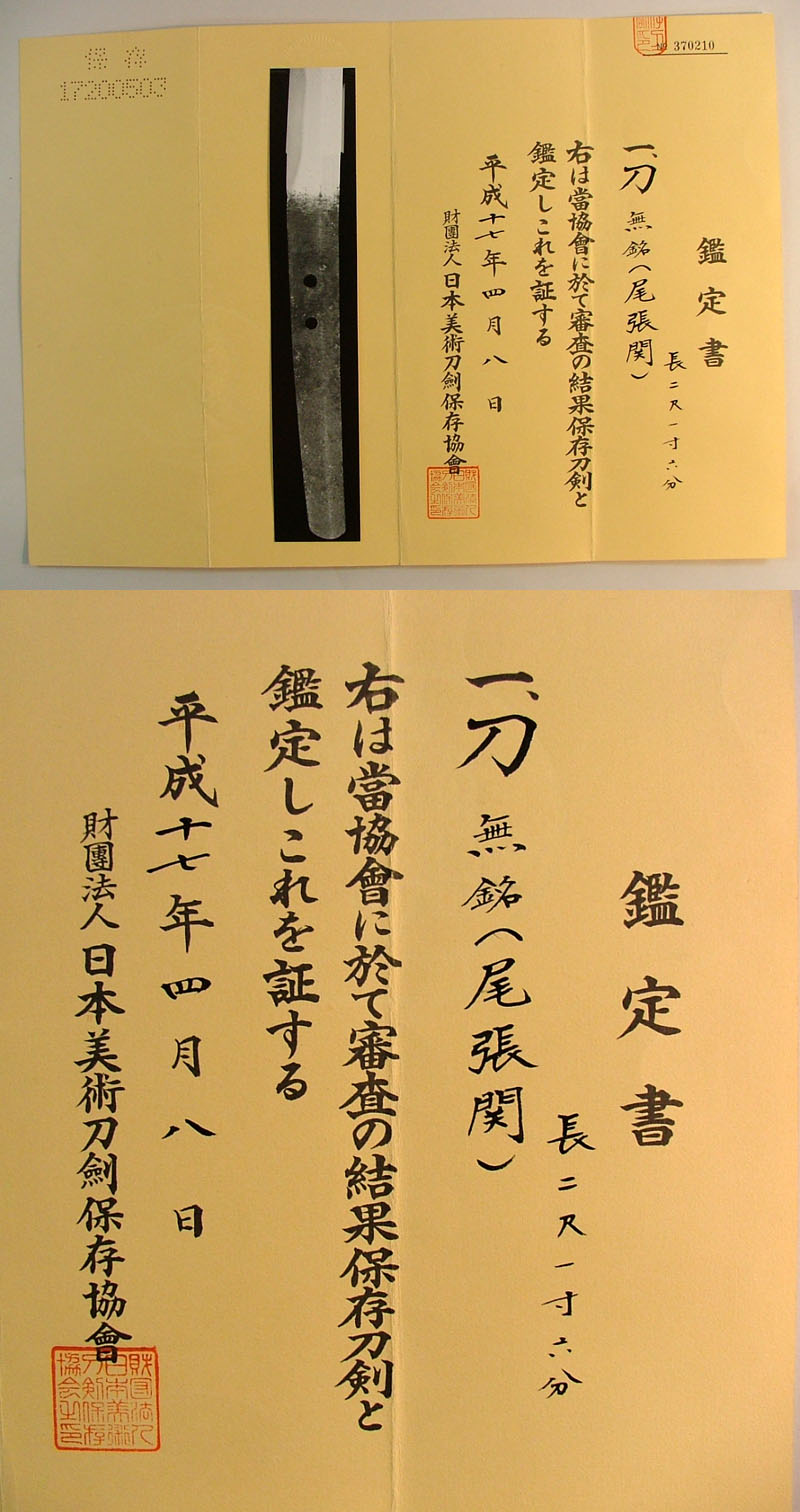 № 370210
鑑定書
一、刀 無銘(尾張関)
長二尺一寸六分
右は當協會に於て審査の結果保存刀剣と
鑑定しこれを証する
平成十七年四月八日
財團法人日本美術刀劍保存協會
財団法人日本美術刀剣保存協会之印
保存
17200503
鑑定書
一、刀 無銘(尾張関)
長二尺一寸六分
右は當協會に於て審査の結果保存刀剣と
鑑定しこれを証する
平成十七年四月八日
財團法人日本美術刀劍保存協會
財団法人日本美術刀剣保存協会之印